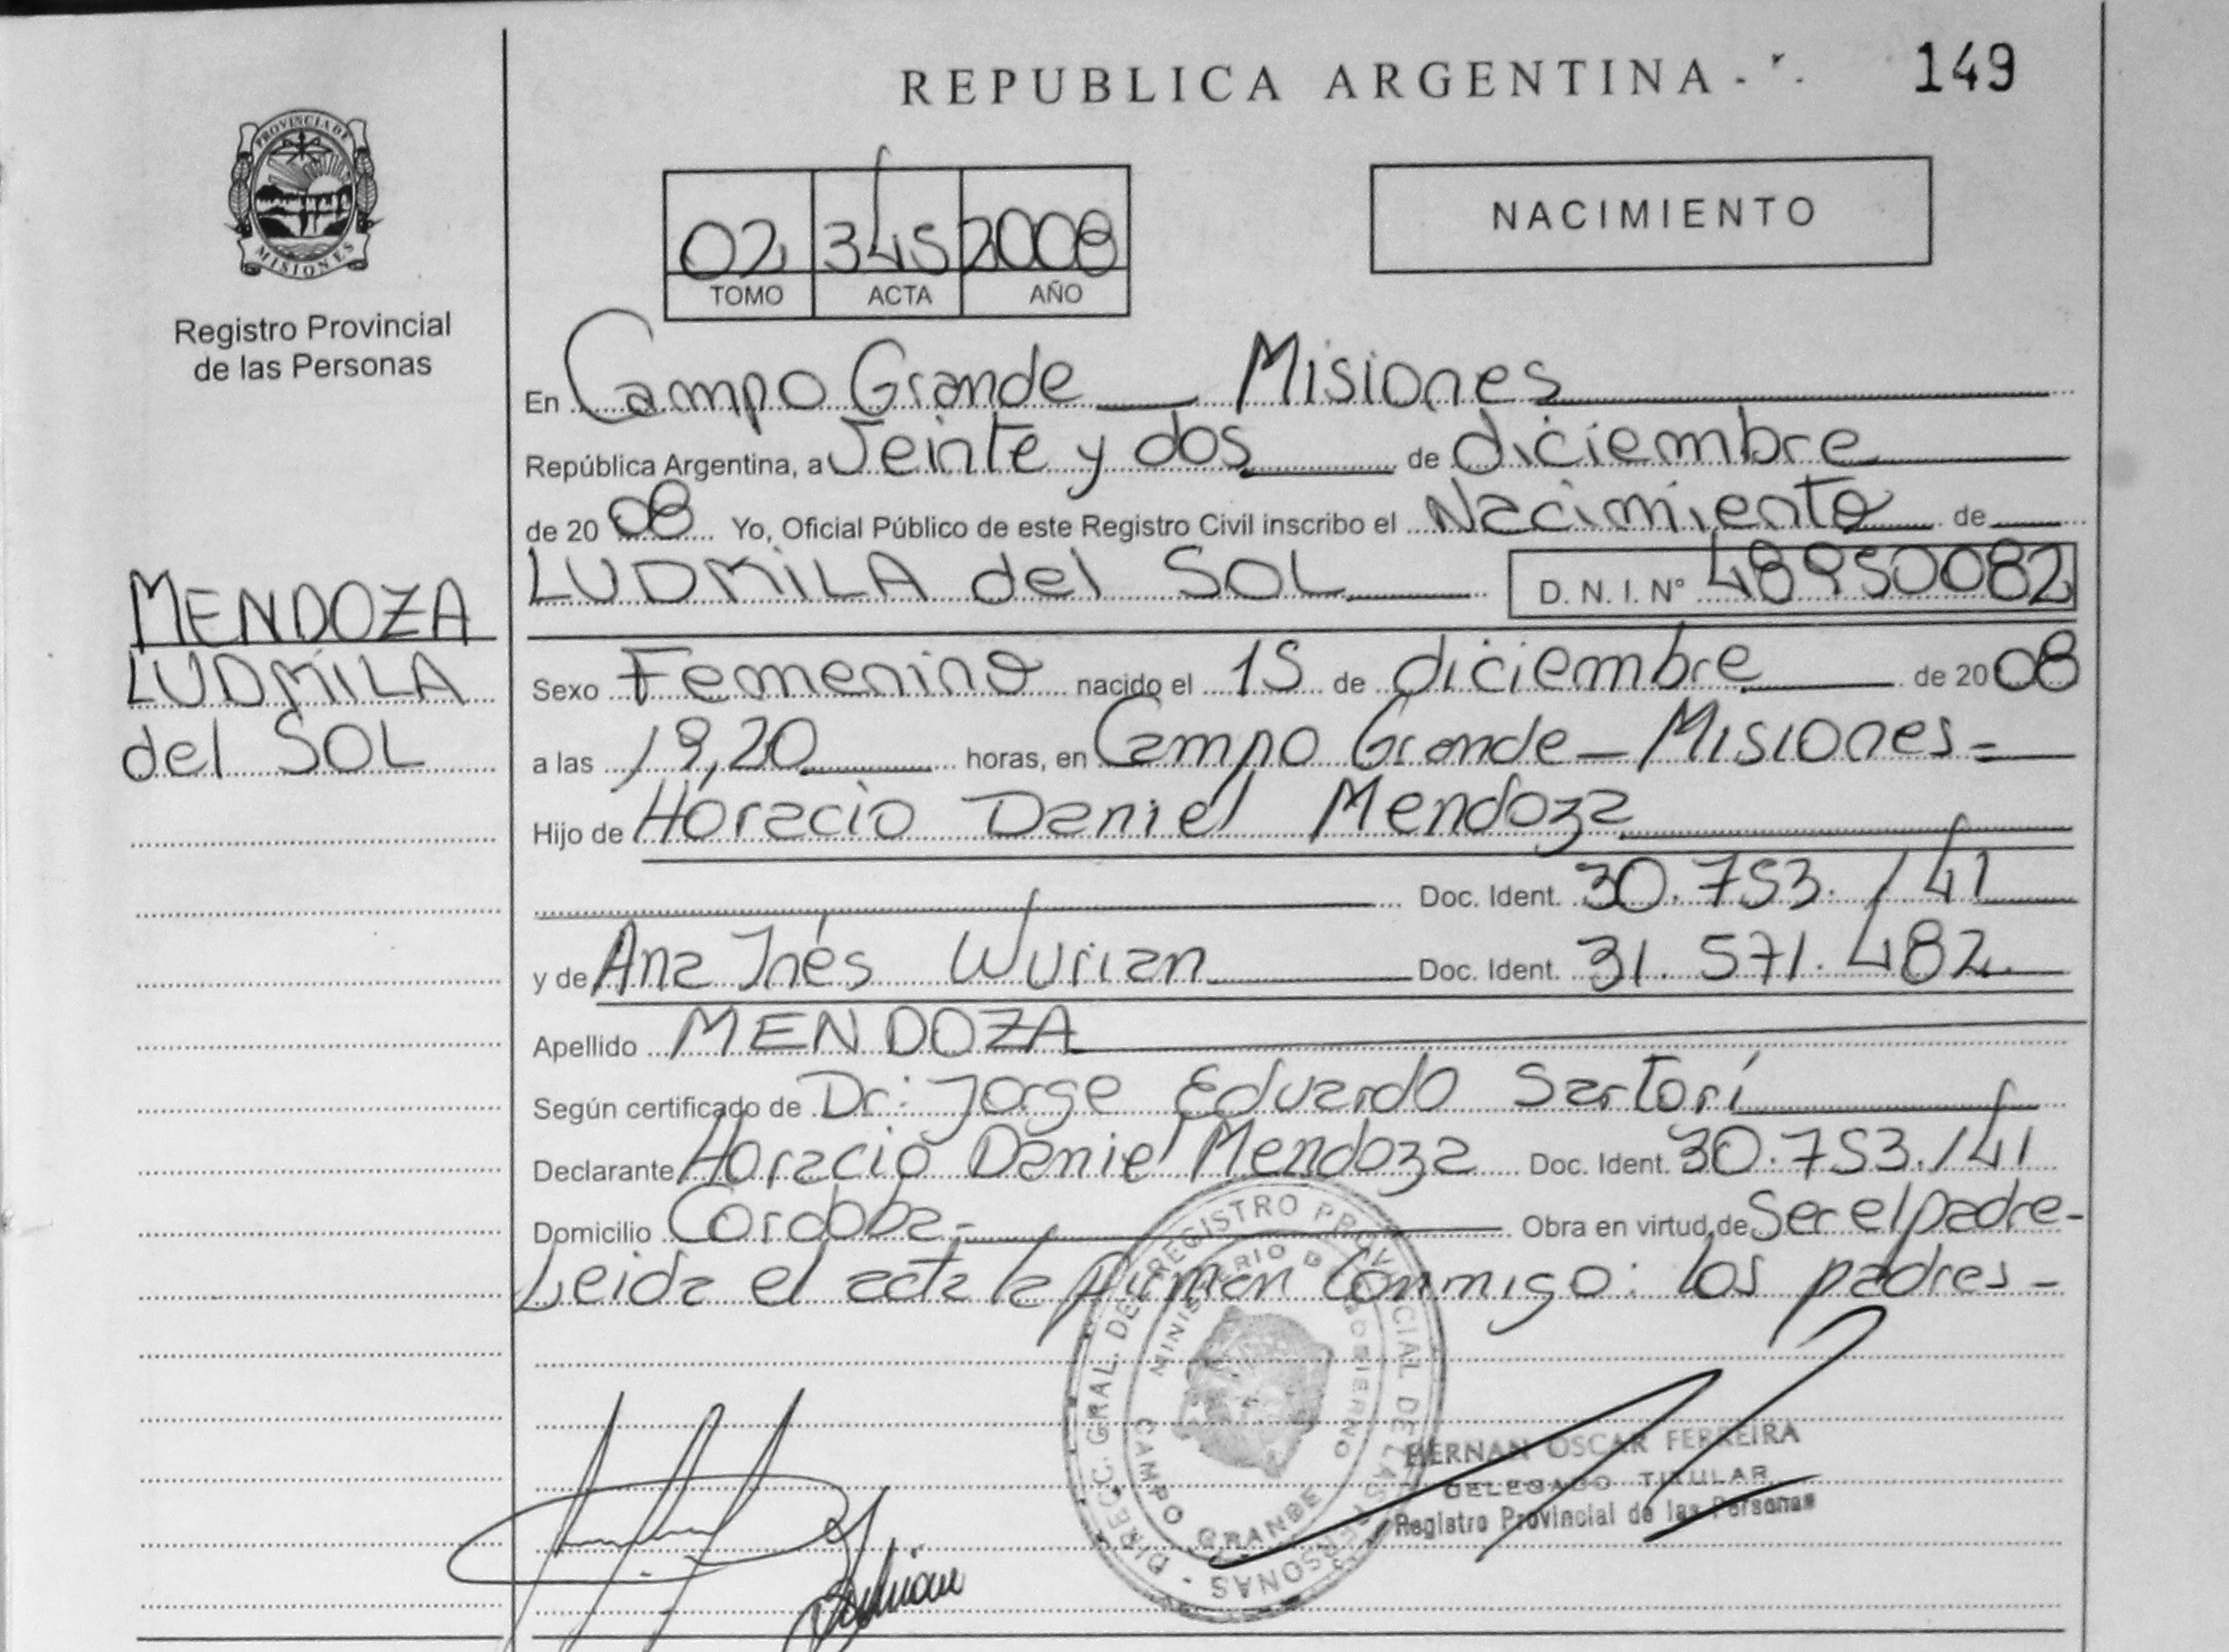 REPUBLICA ARGENTINA
149
PROVINCIA DE
MISIONES
Registro Provincial
de las Personas
02 345 2008
TOMO ACTA AÑO
NACIMIENTO
En Campo Grande Misiones
República Argentina, a Veinte y dos de diciembre
de 20 08 Yo, Oficial Público de este Registro Civil inscribo el Nacimiento de
LUDMILA del SOL D. N. I. N° 48950082
MENDOZA
LUDMILA
del SOL
Sexo Femenino nacido el 15 de diciembre de 20 08
a las 19,20 horas, en Campo Grande - Misiones =
Hijo de Horacio Daniel Mendoza
Doc. Ident. 30.753.141
y de Ana Inés Wurian Doc. Ident. 31.571.482
Apellido MENDOZA
Según certificado de Dr: Jorge Eduardo Sartori
Declarante Horacio Daniel Mendoza Doc. Ident. 30.753.141
Domicilio Cordoba - Obra en virtud de Ser el padre -
Leida el acta la firman Conmigo: los padres -
DIRECC. GRAL. DE REGISTRO PROVINCIAL DE LAS PERSONAS
MINISTERIO DE GOBIERNO
CAMPO GRANDE
HERNAN OSCAR FERREIRA
DELEGADO TITULAR
Registro Provincial de las Personas